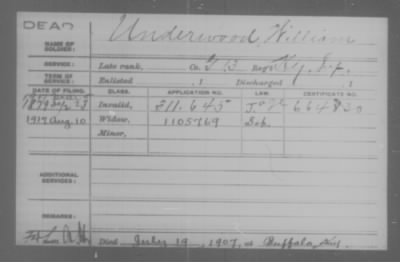 DEAD
Underwood, William
NAME OF SOLDIER:
SERVICE: Late rank, Co. G Reg't Ky. Inf.
TERM OF SERVICE: Enlisted , 1 Discharged , 1
DATE OF FILING. CLASS. APPLICATION NO. LAW. CERTIFICATE NO.
1879 Invalid, 311.645 664830
1917 Aug. 10 Widow, 1105769
Minor,
ADDITIONAL SERVICES:
REMARKS:
Died July 19, 1907, at Buffalo, Ky.